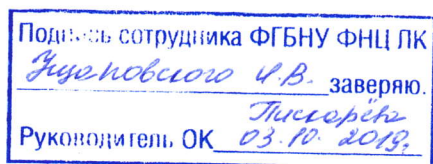 Подпись сотрудника ФГБНУ ФНЦ ЛК
Ущаповского И.В. заверяю.
Пискарёва
Руководитель ОК 03.10.2019г.